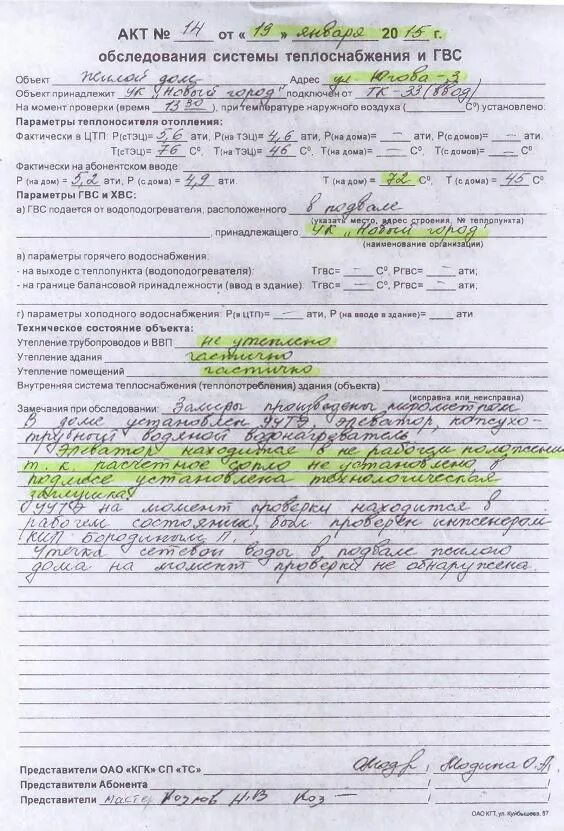 АКТ № 14 от « 19 » января 2015 г.
обследования системы теплоснабжения и ГВС
Объект Жилой дом Адрес ул. Югова-3
Объект принадлежит УК "Новый город" подключен от ТК-33 (ввод)
На момент проверки (время 13 30), при температуре наружного воздуха ( С°) установлено:
Параметры теплоносителя отопления:
Фактически в ЦТП: Р(сТЭЦ)= 5,6 ати, Р(на ТЭЦ)= 4,6 ати, Р(на дома)= — ати, Р(с домов)= — ати,
Т(сТЭЦ)= 76 С°, Т(на ТЭЦ)= 46 С°, Т(на дома)= — С°, Т(с домов)= — С°
Фактически на абонентском вводе:
Р (на дом) = 5,2 ати, Р (с дома) = 4,9 ати, Т (на дом) = 72 С°, Т (с дома) = 45 С°
Параметры ГВС и ХВС:
а) ГВС подается от водоподогревателя, расположенного в подвале
(указать место, адрес строения, № теплопункта)
, принадлежащего УК "Новый город
(наименование организации)
в) параметры горячего водоснабжения:
- на выходе с теплопункта (водоподогревателя): Тгвс= — С°, Ргвс= — ати;
- на границе балансовой принадлежности (ввод в здание): Тгвс= — С°, Ргвс= — ати;
г) параметры холодного водоснабжения: Р(в ЦТП)= — ати, Р (на вводе в здание)= ати;
Техническое состояние объекта:
Утепление трубопроводов и ВВП не утеплено
Утепление здания частично
Утепление помещений частично
Внутренняя система теплоснабжения (теплопотребления) здания (объекта)
(исправна или неисправна)
Замечания при обследовании: Замеры произведены пирометром
В доме установлен УУТЭ, элеватор, кожухо-
трубный водяной водонагреватель
Элеватор находится в не рабочем положении
т. к. расчетное сопло не установлено, в
установлена технологическая
заглушка.
УУТЭ на момент проверки находится в
рабочем состоянии, был проверен инженером
КИП Бородиным П.
Утечка сетевой воды в подвале жилого
дома на момент проверки не обнаружена.
Представители ОАО «КГК» СП «ТС» Мадина О.А.
Представители Абонента
Представители мастер Н.В
ОАО КГТ, ул. Куйбышева, 87